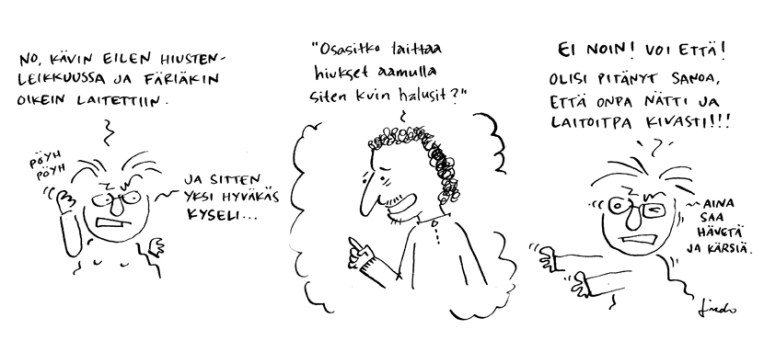 NO, KÄVIN EILEN HIUSTEN-
LEIKKUUSSA JA FÄRIÄKIN
OIKEIN LAITETTIIN.
PÖYH
PÖYH
JA SITTEN
YKSI HYVÄKÄS
KYSELI...
"Osasitko laittaa
hiukset aamulla
siten kuin halusit?"
EI NOIN! VOI ETTÄ!
OLISI PITÄNYT SANOA,
ETTÄ ONPA NÄTTI JA
LAITOITPA KIVASTI!!!
AINA
SAA
HÄVETÄ
JA KÄRSIÄ.